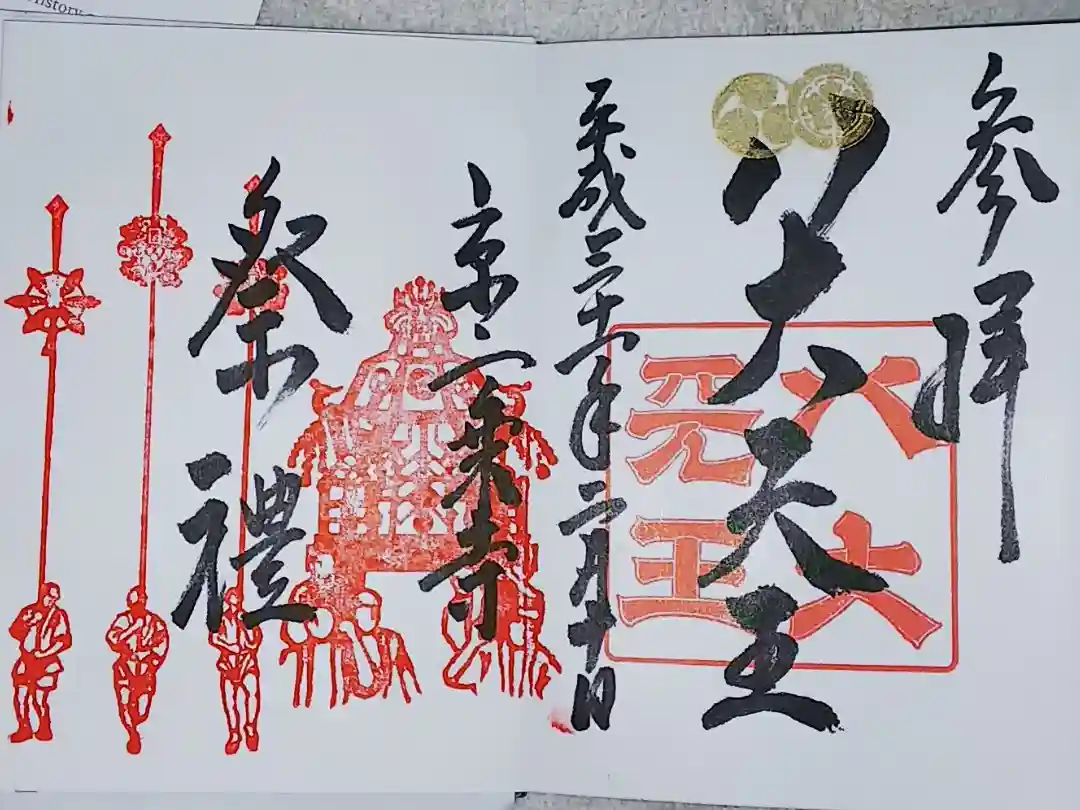 参拝
八大天王
八大
天王
平成三十一年二月十日
京、一乗寺
祭禮
History